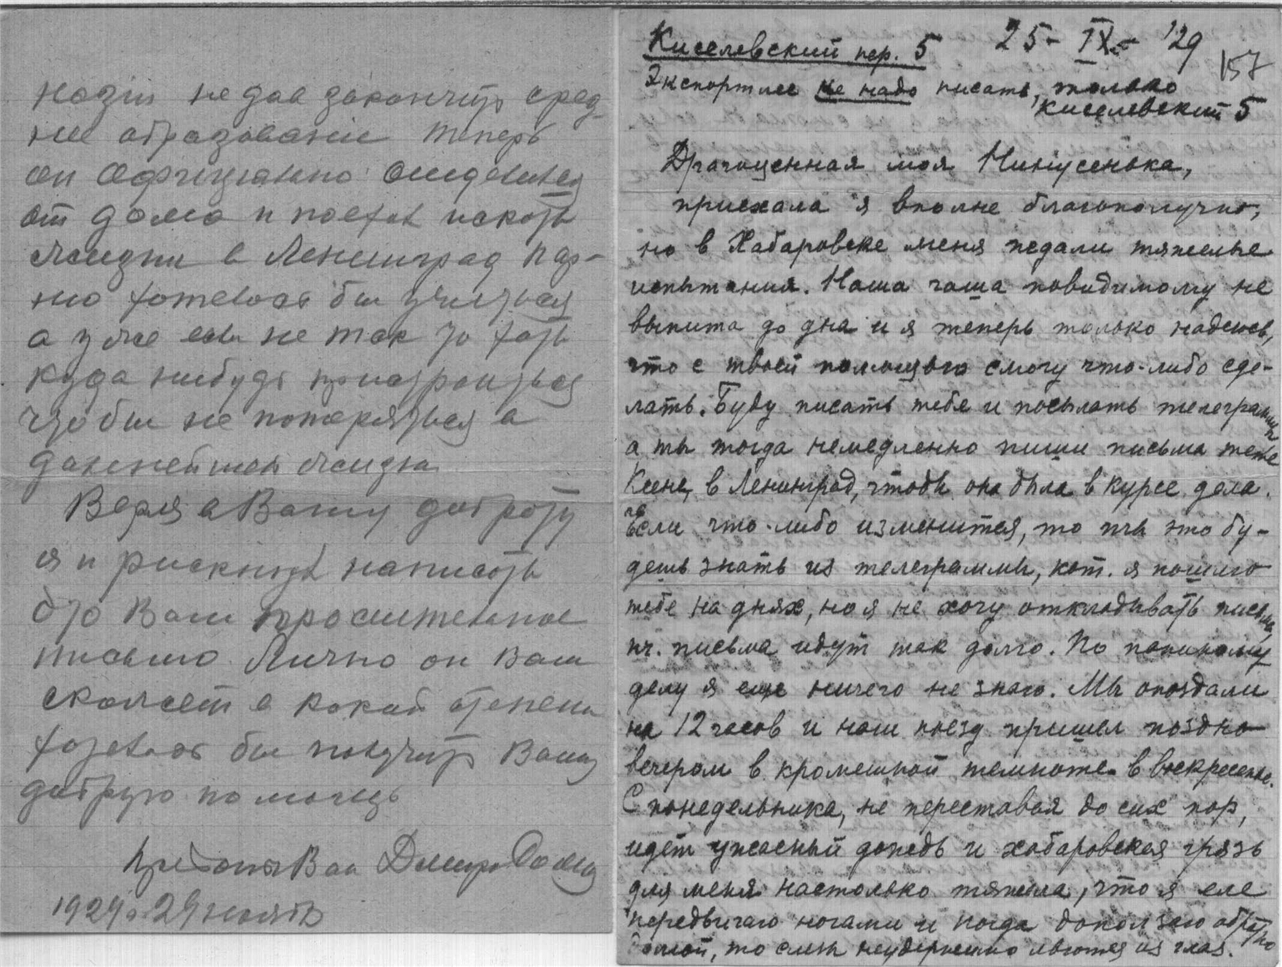 не дав закончить сред-
нее образование теперь
он официально
от дома и поехал искать
жизни в Ленинград
но хотелось бы учиться
а уже если не так то хоть
куда нибудь пристроиться
чтобы не потеряться в
дальнейшей жизни
Веря в Вашу доброту
я и рискнул написать
это Вам просительное
письмо. Лично он Вам
скажет в какой степени
хотелось бы получить Вашу
добрую помощь
1929 г. 29 ноября
Киселевский пер. 5 25-IX-'29
157
Экспортлес не надо писать, только
Киселевский 5
Драгоценная моя Нинусенька,
приехала я вполне благополучно,
но в Хабаровске меня ждали тяжелые
испытания. Наша чаша повидимому не
выпита до дна и я теперь только надеюсь,
что с твоей помощью смогу что-либо сде-
лать. Буду писать тебе и посылать телеграммы
а ты тогда немедленно пиши письма тете
Ксене в Ленинград, чтобы она была в курсе дела.
Если что-либо изменится, то ты это бу-
дешь знать из телеграммы, кот. я пошлю
тебе на днях, но я не хочу откладывать письма,
пч. письма идут так долго. По папиному
делу я еще ничего не знаю. Мы опоздали
на 12 часов и наш поезд пришел поздно
вечером в кромешной темноте в воскресенье.
С понедельника, не переставая до сих пор,
идет ужасный дождь и хабаровская грязь
для меня настолько тяжела, что я еле
передвигаю ногами и когда доползаю обратно
домой, то слезы неудержимо льются из глаз.